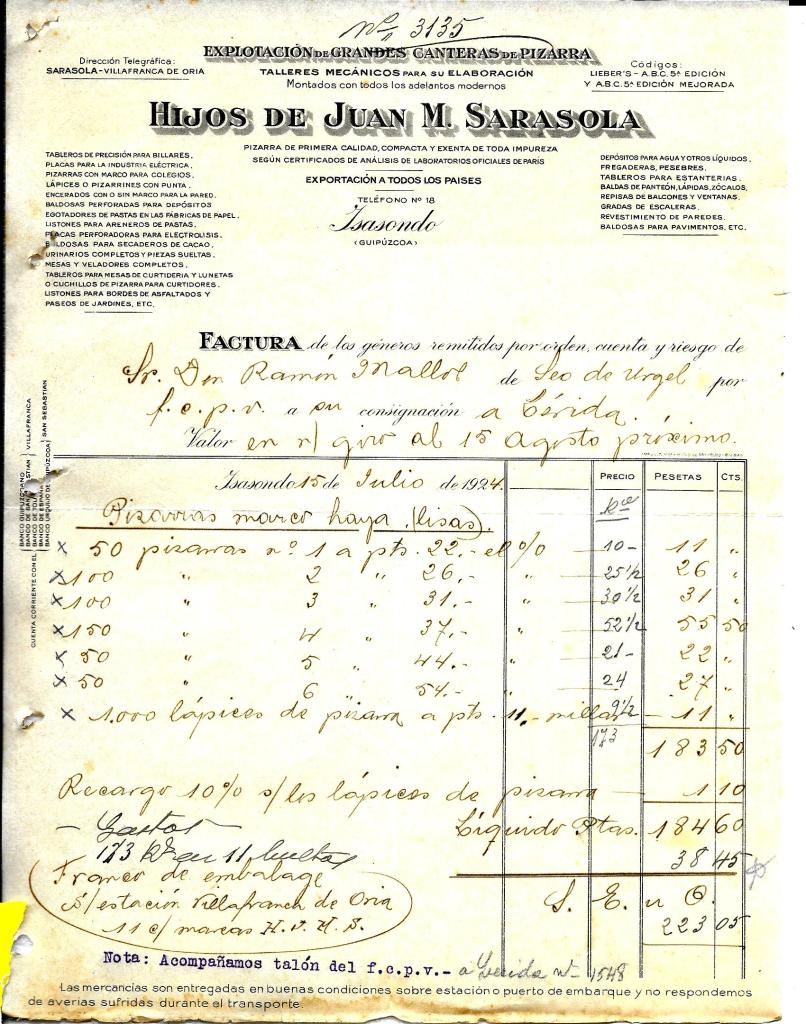 Nº 3135
EXPLOTACIÓN DE GRANDES CANTERAS DE PIZARRA
Dirección Telegráfica:
SARASOLA-VILLAFRANCA DE ORIA
TALLERES MECÁNICOS PARA SU ELABORACIÓN
Montados con todos los adelantos modernos
Códigos:
LIEBER'S - A.B.C. 5ª EDICIÓN
Y A.B.C. 5ª EDICIÓN MEJORADA
HIJOS DE JUAN M. SARASOLA
PIZARRA DE PRIMERA CALIDAD, COMPACTA Y EXENTA DE TODA IMPUREZA
SEGÚN CERTIFICADOS DE ANÁLISIS DE LABORATORIOS OFICIALES DE PARÍS
EXPORTACIÓN A TODOS LOS PAISES
TELÉFONO Nº 18
Isasondo
(GUIPÚZCOA)
TABLEROS DE PRECISIÓN PARA BILLARES,
PLACAS PARA LA INDUSTRIA ELÉCTRICA,
PIZARRAS CON MARCO PARA COLEGIOS,
LÁPICES O PIZARRINES CON PUNTA,
ENCERADOS CON O SIN MARCO PARA LA PARED.
BALDOSAS PERFORADAS PARA DEPÓSITOS
EGOTADORES DE PASTAS EN LAS FÁBRICAS DE PAPEL.
LISTONES PARA ARENEROS DE PASTAS.
PLACAS PERFORADORAS PARA ELECTROLISIS.
BALDOSAS PARA SECADEROS DE CACAO,
URINARIOS COMPLETOS Y PIEZAS SUELTAS.
MESAS Y VELADORES COMPLETOS,
TABLEROS PARA MESAS DE CURTIDERIA Y LUNETAS
O CUCHILLOS DE PIZARRA PARA CURTIDORES.
LISTONES PARA BORDES DE ASFALTADOS Y
PASEOS DE JARDINES, ETC.
DEPÓSITOS PARA AGUA Y OTROS LÍQUIDOS,
FREGADERAS, PESEBRES,
TABLEROS PARA ESTANTERIAS.
BALDAS DE PANTEÓN, LÁPIDAS, ZÓCALOS,
REPISAS DE BALCONES Y VENTANAS.
GRADAS DE ESCALERAS.
REVESTIMIENTO DE PAREDES.
BALDOSAS PARA PAVIMENTOS, ETC.
FACTURA de los géneros remitidos por orden, cuenta y riesgo de
Sr. Don Ramón Mallol de Seo de Urgel por
f.c.p.v. a su consignación a Lérida.
Valor en n/ giro al 15 agosto próximo.
CUENTA CORRIENTE CON EL
BANCO GUIPUZCOANO
VILLAFRANCA
SAN SEBASTIAN
Isasondo 15 de Julio de 1924.
PRECIO PESETAS CTS.
Pizarras marco haya (lisas).
x 50 pizarras nº 1 a pts. 22,- el % 10- 11 "
x 100 " 2 " 26,- " 25 1/2 26 "
x 100 " 3 " 31.- " 30 1/2 31 "
x 150 " 4 " 37,- " 52 1/2 55 50
x 50 " 5 " 44.- " 21- 22 "
x 50 " 6 " 54.- " 24 27 "
x 1.000 lápices de pizarra a pts. 11,- millar 9 1/2 11 "
173
183 50
Recargo 10% s/ los lápices de pizarra 1 10
Líquido Ptas. 184 60
- Gastos
38 45
Franco de embalage
S/ estación Villafranca de Oria
11 c/ marcas H. J. M. S.
S. E. u O.
223 05
Nota: Acompañamos talón del f.c.p.v.- a Lerida nº 1548
Las mercancias son entregadas en buenas condiciones sobre estación o puerto de embarque y no respondemos
de averias sufridas durante el transporte.